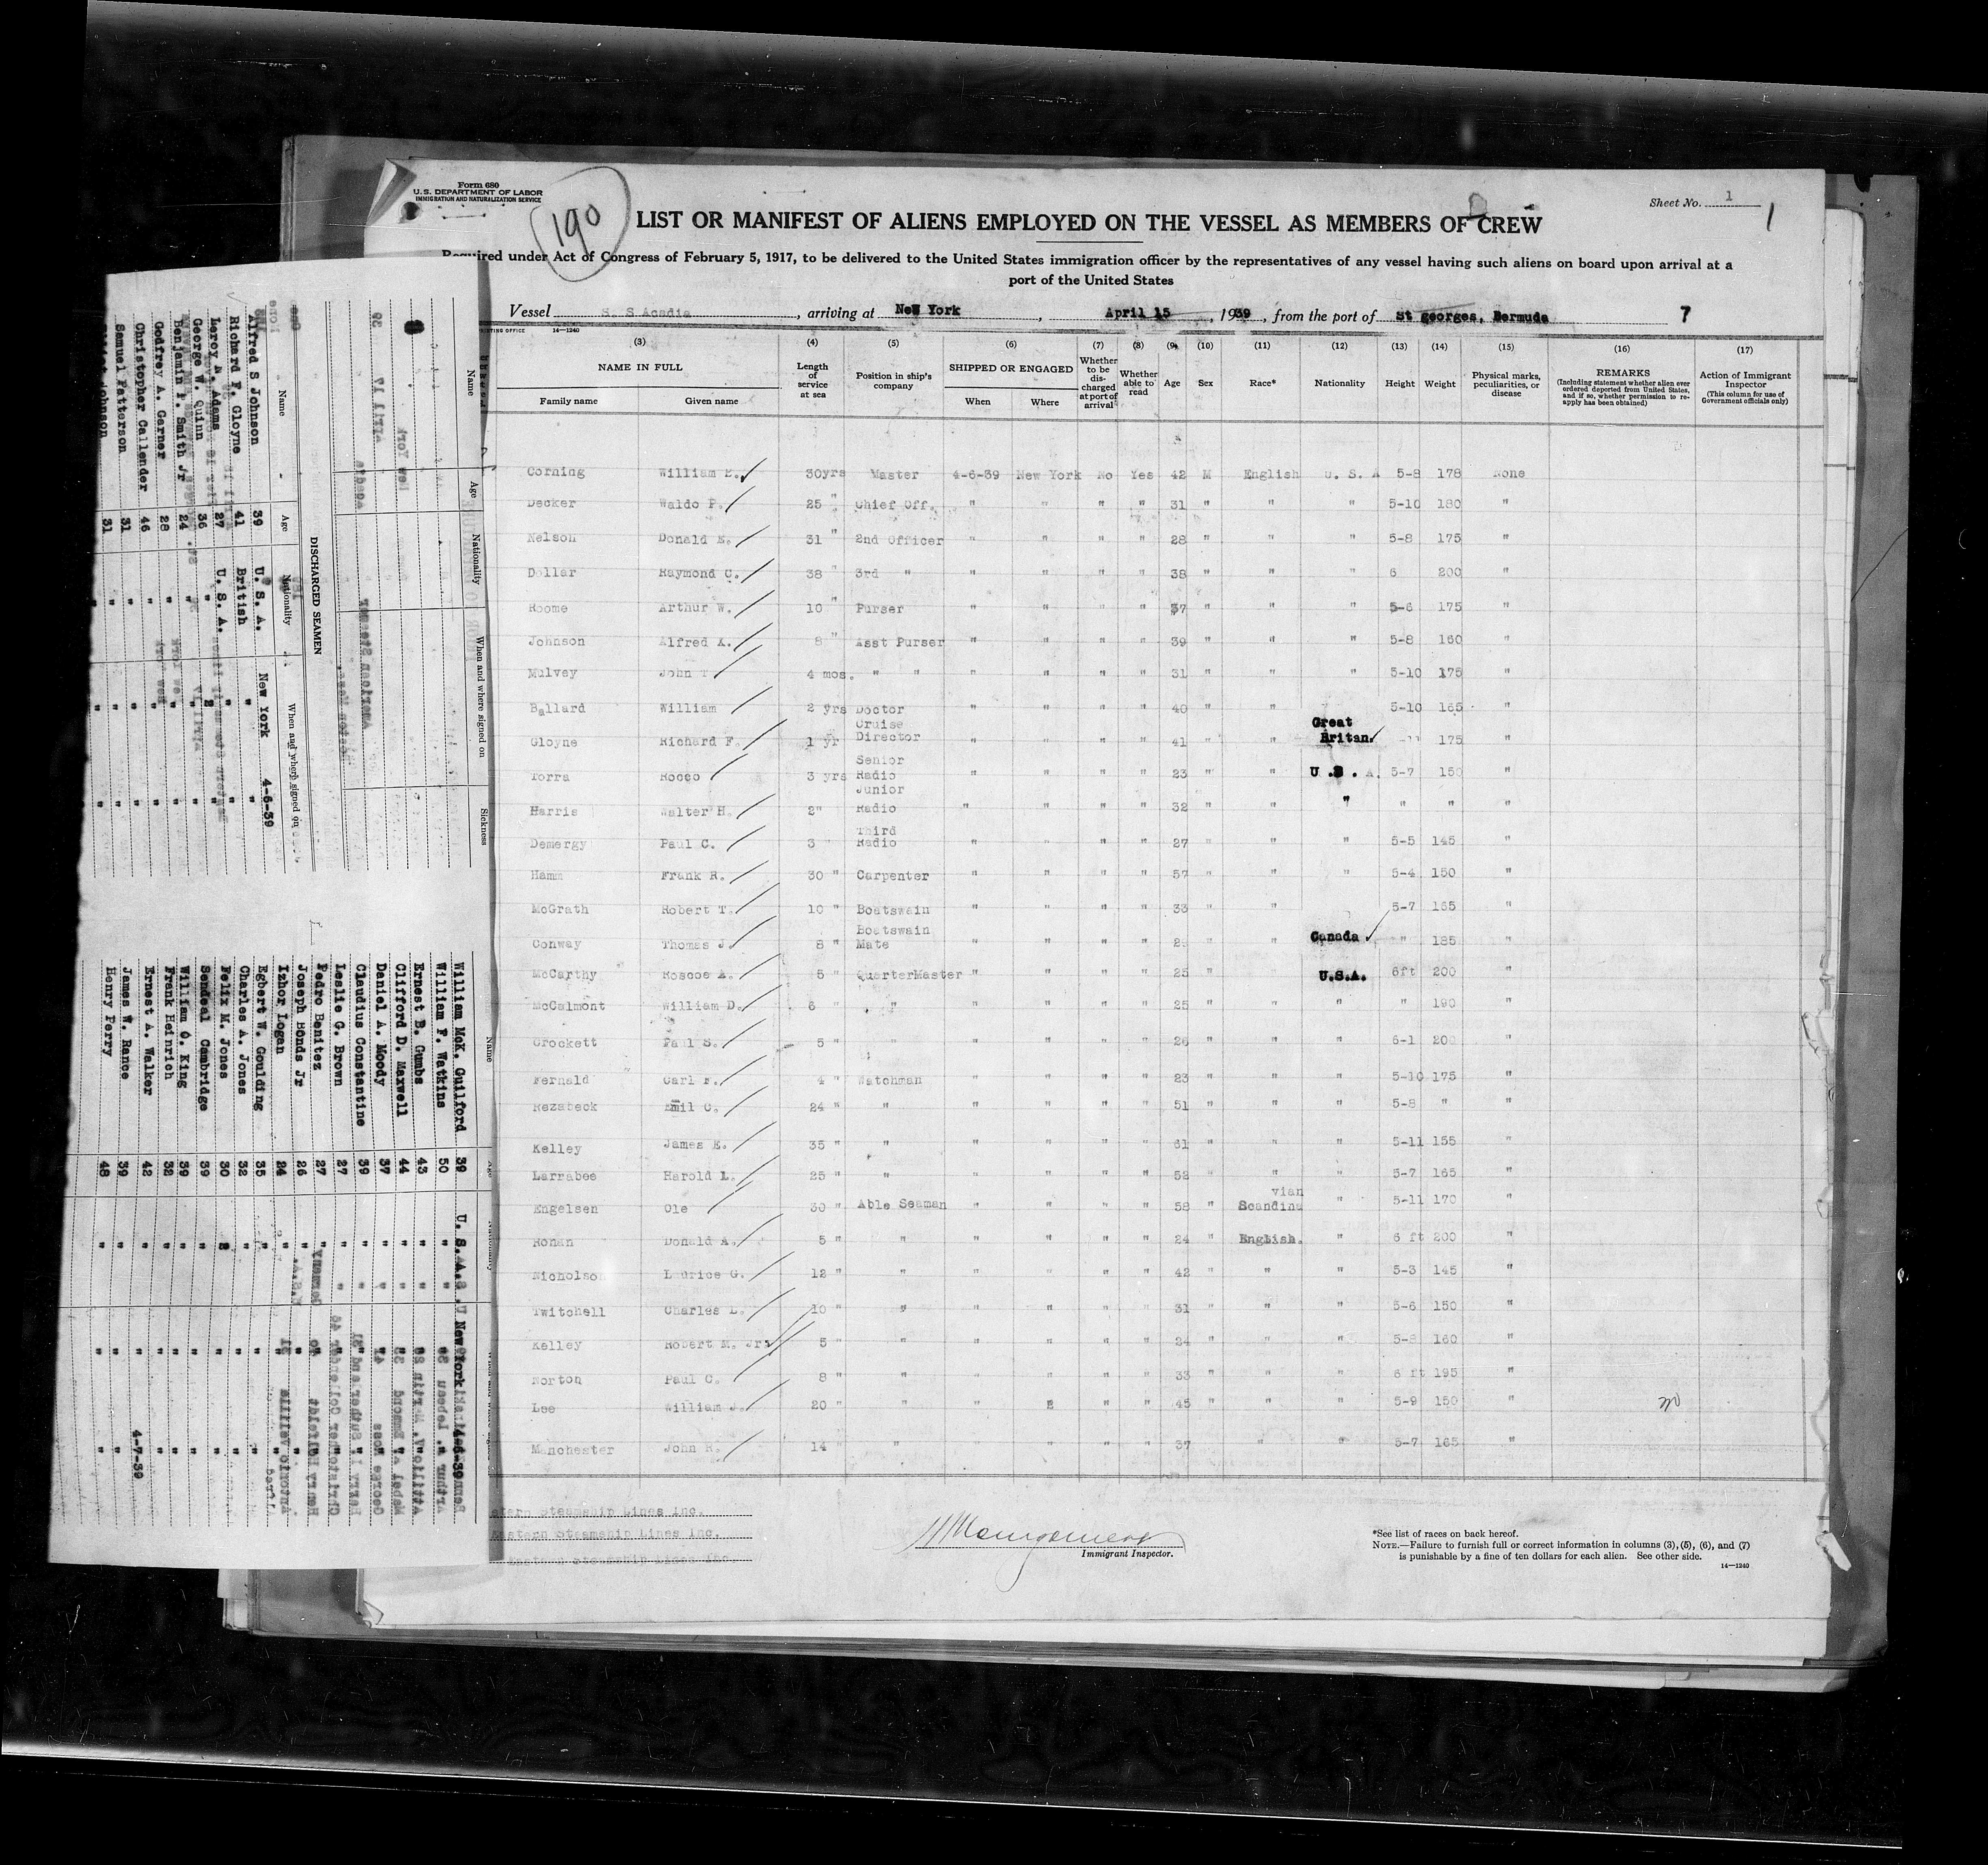 Form 680
U.S. DEPARTMENT OF LABOR
IMMIGRATION AND NATURALIZATION SERVICE
190
Sheet No. 1
1
LIST OR MANIFEST OF ALIENS EMPLOYED ON THE VESSEL AS MEMBERS OF CREW
Required under Act of Congress of February 5, 1917, to be delivered to the United States immigration officer by the representatives of any vessel having such aliens on board upon arrival at a
port of the United States
Vessel S. S Acadia, arriving at New York, April 15, 1939, from the port of St georges, Bermuda 7
14—1240
(3) (4) (5) (6) (7) (8) (9) (10) (11) (12) (13) (14) (15) (16) (17)
NAME IN FULL Family name Given name Length of service at sea Position in ship's company SHIPPED OR ENGAGED When Where Whether to be discharged at port of arrival Whether able to read Age Sex Race* Nationality Height Weight Physical marks, peculiarities, or disease REMARKS (Including statement whether alien ever ordered deported from United States, and if so, whether permission to reapply has been obtained) Action of Immigrant Inspector (This column for use of Government officials only)
Corning William E. 30yrs Master 4-6-39 New York No Yes 42 M English U. S. A 5-8 178 None
Decker Waldo P. 25 " Chief Off. " " " " 31 " " " 5-10 180 "
Nelson Donald E. 31 " 2nd Officer " " " " 28 " " " 5-8 175 "
Dollar Raymond C. 38 " 3rd " " " " " 38 " " " 6 200 "
Roome Arthur W. 10 " Purser " " " " 37 " " " 5-6 175 "
Johnson Alfred A. 8 " Asst Purser " " " " 39 " " " 5-8 160 "
Mulvey John T. 4 mos. " " " " " " 31 " " " 5-10 175 "
Ballard William 2 yrs Doctor " " " " 40 " " 5-10 165 "
Gloyne Richard F. 1 yr Cruise Director " " " " 41 " " Great Britan 175 "
Torra Rocco 3 yrs Senior Radio " " " " 23 " " U.S.A. 5-7 150 "
Harris Walter H. 2" Junior Radio " " " " 32 " " " " " "
Demergy Paul C. 3 " Third Radio " " " " 27 " " " 5-5 145 "
Hamm Frank R. 30 " Carpenter " " " " 57 " " " 5-4 150 "
McGrath Robert T. 10 " Boatswain " " " " 33 " " 5-7 165 "
Conway Thomas J. 8 " Boatswain Mate " " " " " " Canada " 185 "
McCarthy Roscoe A. 5 " QuarterMaster " " " " 25 " " U.S.A. 6ft 200 "
McCalmont William D. 6 " " " " " " 25 " " " " 190 "
Crockett Paul S. 5 " " " " " " 26 " " " 6-1 200 "
Fernald Carl F. 4 " Watchman " " " " 23 " " " 5-10 175 "
Rezabeck Emil C. 24 " " " " " " 51 " " " 5-8 " "
Kelley James E. 35 " " " " " " 61 " " " 5-11 155 "
Larrabee Harold L. 25 " " " " " " 52 " " " 5-7 165 "
Engelsen Ole 30 " Able Seaman " " " " 58 " Scandinavian " 5-11 170 "
Ronan Donald A. 5 " " " " " " 24 " English. " 6 ft 200 "
Nicholson Laurice G. 12 " " " " " " 42 " " " 5-3 145 "
Twitchell Charles L. 10 " " " " " " 31 " " " 5-6 150 "
Kelley Robert M. Jr. 5 " " " " " " 24 " " " 5-8 160 "
Norton Paul C. 8 " " " " " " 33 " " " 6 ft 195 "
Lee William J. 20 " " " " " " 45 " " " 5-9 150 "
Manchester John R. 14 " " " " " " 37 " " " 5-7 165 "
Eastern Steamship Lines Inc.
Eastern Steamship Lines Inc.
Eastern Steamship Lines Inc.
Immigrant Inspector.
*See list of races on back hereof.
NOTE.—Failure to furnish full or correct information in columns (3), (5), (6), and (7)
is punishable by a fine of ten dollars for each alien. See other side.
14—1240
Name Age Nationality When and where signed on Sickness
DISCHARGED SEAMEN
Name Age Nationality When and where signed on
Alfred S Johnson 39 U. S. A. New York 4-6-39
Richard F. Gloyne 41 British " "
Leroy N. Adams 27 U. S. A. " "
George W. Quinn 36 " " "
Benjamin P. Smith Jr 24 " " "
Godfrey A. Garner 28 " " "
Christopher Callender 46 " " "
Samuel Patterson 31 " " "
Johnson 31 " " "
Name
William McK. Guilford 39 U. S. A. New York 4-6-39
William F. Watkins 50 " " "
Ernest B. Gumbs 43 " " "
Clifford D. Maxwell 44 " " "
Daniel A. Moody 37 " " "
Claudius Constantine 39 " " "
Leslie G. Brown 27 " " "
Pedro Benitez 27 " " "
Joseph Bonds Jr 26 " " "
Izhor Logan 24 " " "
Egbert W. Goulding 35 " " "
Charles A. Jones 32 " " "
Felix M. Jones 30 " " "
Sendeal Cambridge 39 " " "
William O. King 39 " " "
Frank Heinrich 32 " " "
Ernest A. Walker 42 " " "
James W. Rance 39 " " 4-7-39
Henry Perry 48 " " "